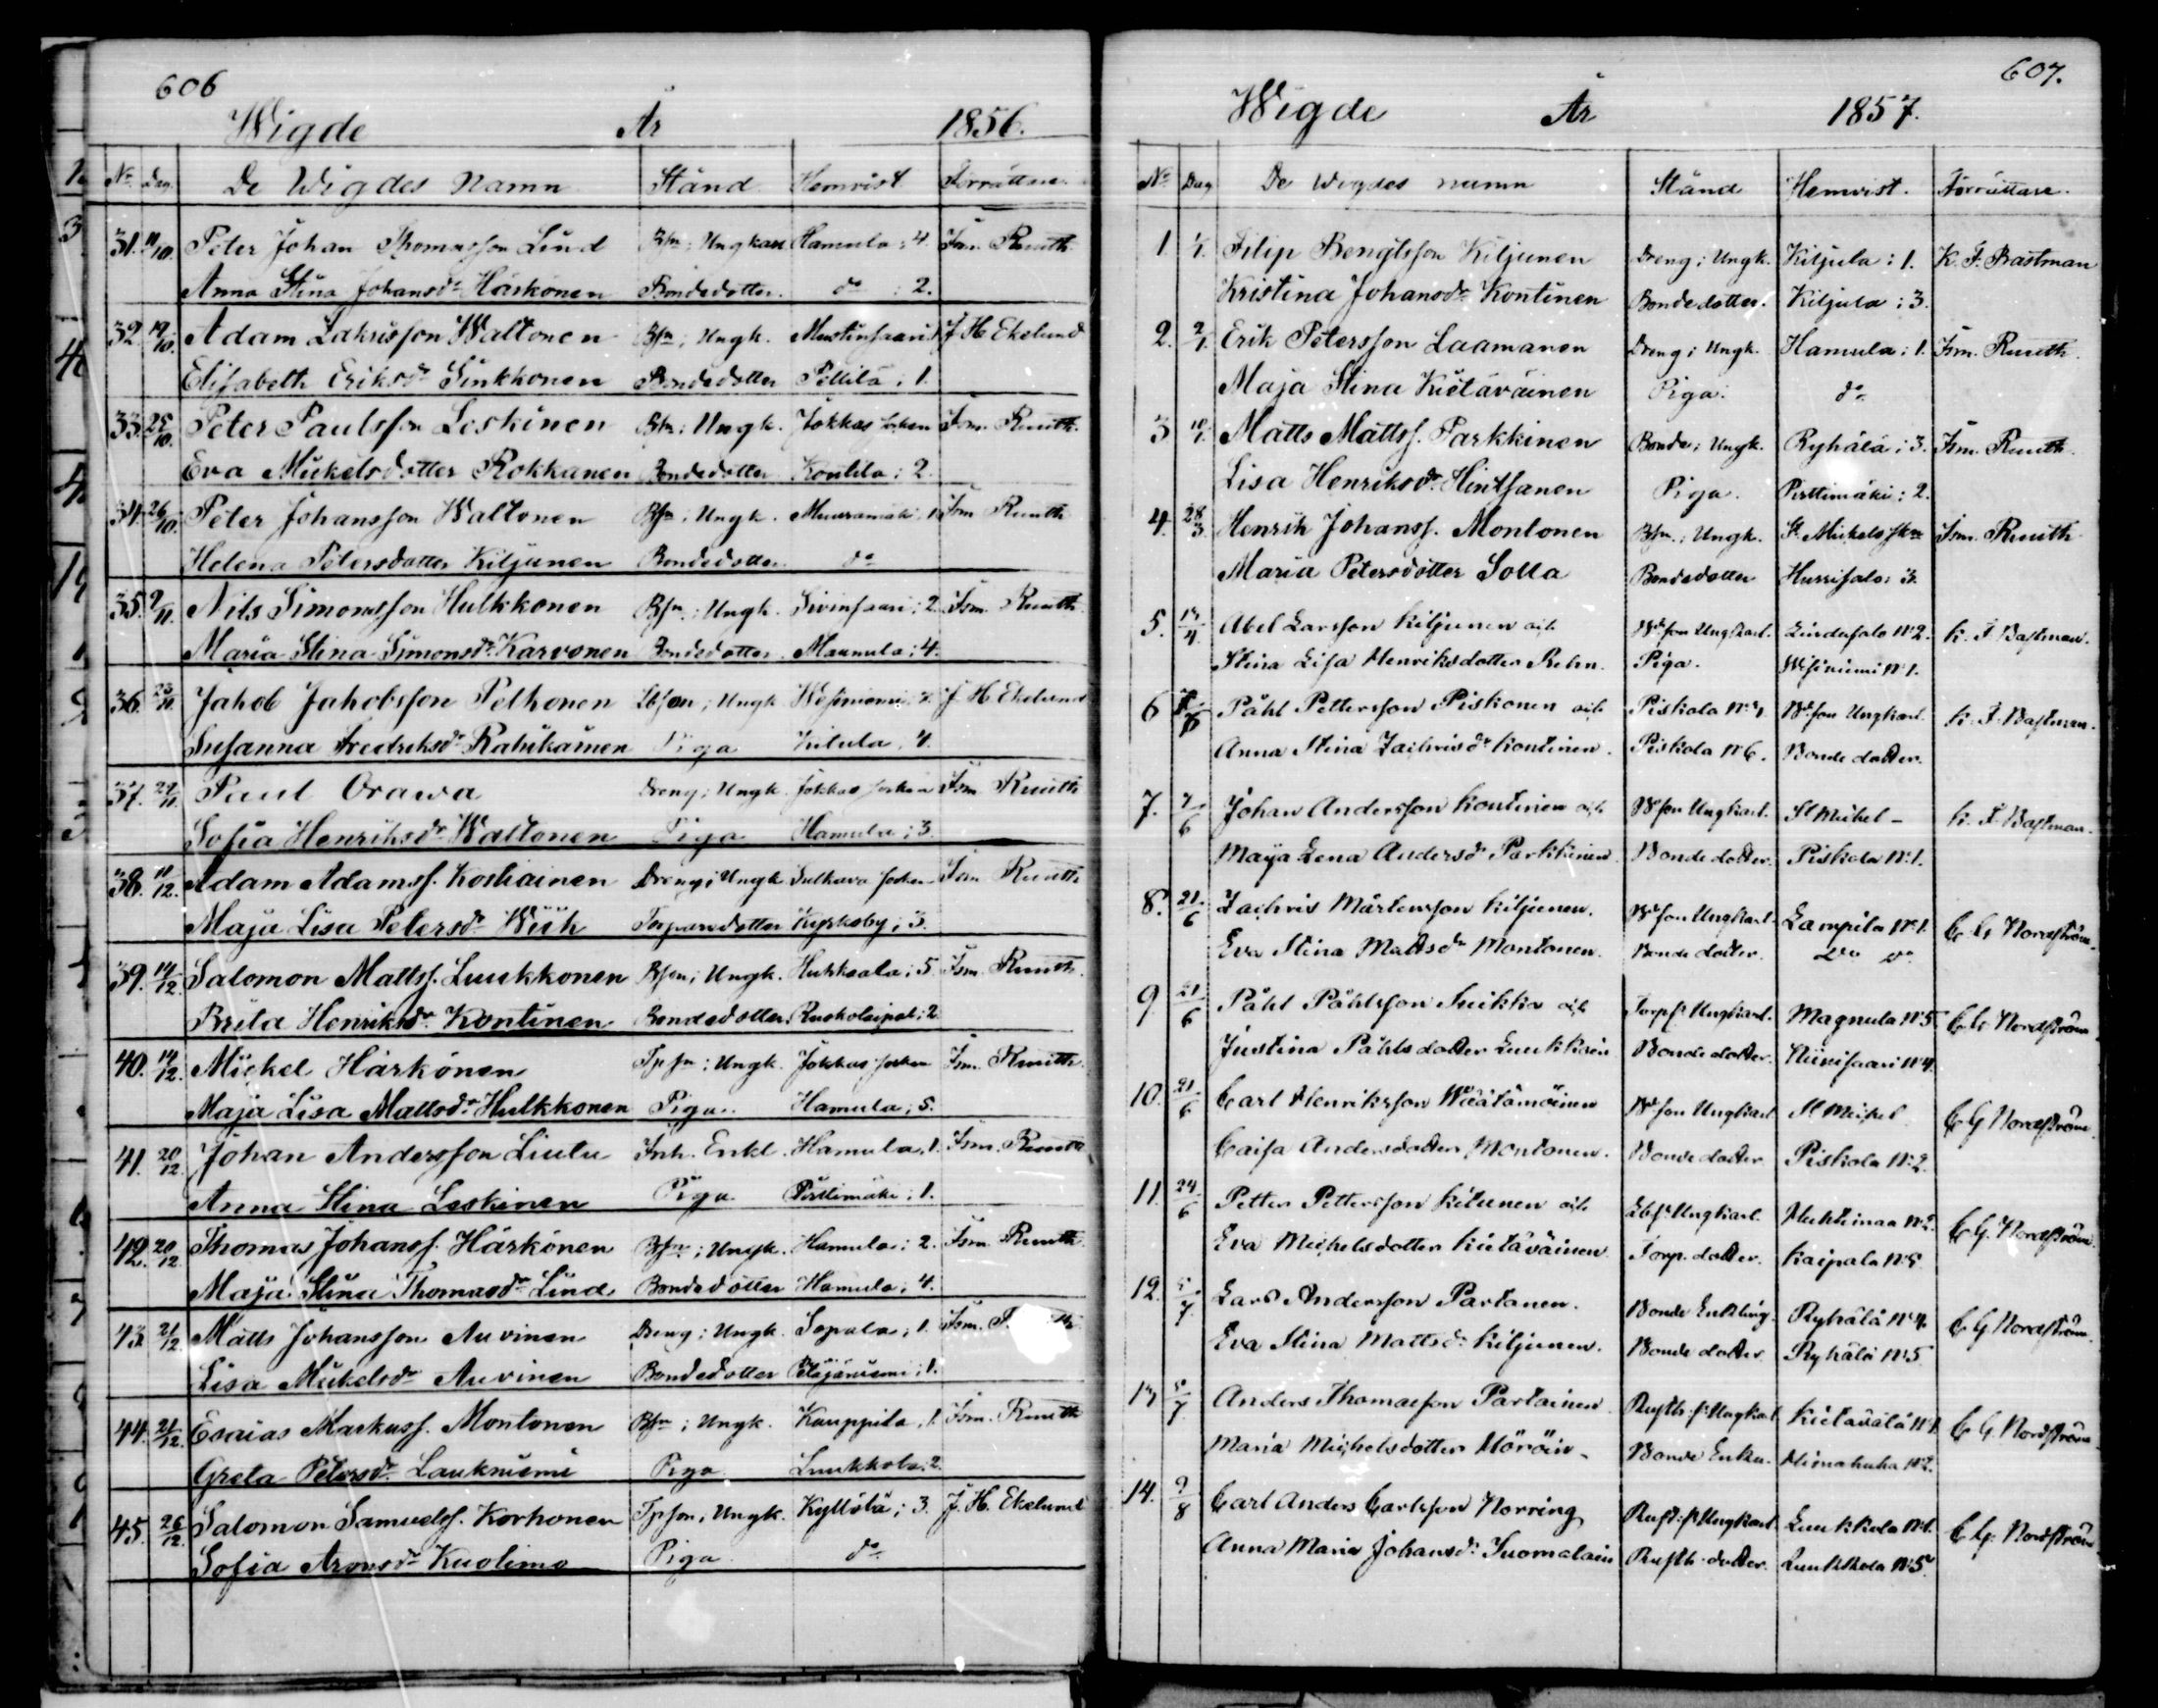 606
Wigde År 1856.
No Dag. De Wigdes Namn Stånd Hemvist Förrättare
31. 11/10. Peter Johan Thomasson Lind Bsn; Ungkarl Hamula: 4. Fsm. Ruuth
Anna Stina Johansdr Härkönen Bondedotter. do : 2.
32. 19/10. Adam Zakrisson Waltonen Bsn; Ungk. Mustinsaari J H Ekelund
Elisabeth Eriksdr Sinkkonen Bondedotter Pettilä; 1.
33. 25/10. Peter Paulsson Leskinen Bsn; Ungk. Jokkas socken Fsm. Ruuth.
Eva Mickelsdotter Rokkanen Bondedotter Koulila: 2.
34. 26/10. Peter Johansson Waltonen Bsn; Ungk. Muuramäki, 1. Fsm Ruuth
Helena Petersdotter Kiljunen Bondedotter do
35. 9/11. Nils Simonsson Hulkkonen Bsn; Ungk. Sivinsaari: 2. Fsm. Ruuth
Maria Stina Simonsdr Karvonen Bondedotter. Maunula; 4.
36. 23/11. Jakob Jakobsson Pelkonen Lbson; Ungk Wesiniemi: J H Ekelund
Susanna Fredriksdr Rahikainen Piga Kulula, 4.
37. 29/11. Paul Orawa Dreng; Ungk. Jokkas socken Fsm Ruuth
Sofia Henriksdr Waltonen Piga Hamula; 3.
38. 11/12. Adam Adamss. Koskiainen Dreng; Ungk Sulkava socken Fsm Ruuth
Maja Lisa Petersdr Wiik Torparedotter Kyrkoby; 3.
39. 14/12. Salomon Mattss. Luukkonen Bson; Ungk. Hukkaala; 5. Fsm. Ruuth.
Brita Henriksdr Kontinen Bondedotter. Ruokoleipol; 2
40. 14/12. Mickel Härkönen Tpsn; Ungk. Jokkas socken Fsm. Ruuth.
Maja Lisa Mattsdr Hulkkonen Piga. Hamula; 5.
41. 20/12. Johan Andersson Liutu Inh. Enkl. Hamula, 1. Fsm. Ruuth
Anna Stina Leskinen Piga Pirttimäki; 1.
42. 20/12. Thomas Johanss. Härkönen Bsn; Ungk. Hamula; 2. Fsm. Ruuth
Maja Stina Thomasdr Lind Bondedotter Hamula; 4.
43. 21/12. Matts Johansson Auvinen Dreng; Ungk. Sopala; 1. Fsm.
Lisa Mickelsdr Auvinen Bondedotter Petäjäniemi; 1.
44. 21/12. Esaias Markuss. Montonen Bsn; Ungk. Kauppila, 1. Fsm. Ruuth
Greta Petersdr Laukniemi Piga Luukkola; 2.
45. 26/12. Salomon Samuelss. Korhonen Tpson; Ungk. Kyllölä; 3. J. H. Ekelund
Sofia Aronsdr Kuolimo Piga do
607.
Wigde År 1857.
No Dag De Wigdes namn Stånd Hemvist. Förrättare.
1. 1/1. Filip Bengtsson Kiljunen Dreng; Ungk. Kiljula: 1. K. F. Bastman
Kristina Johansdr Kontinen Bondedotter. Kiljula; 3.
2. 2/1. Erik Petersson Laamanen Dreng; Ungk. Hamula; 1. Fsm. Ruuth.
Maja Stina Kietäväinen Piga. do
3 10/1. Matts Mattss. Parkkinen Bonde; Ungk. Ryhälä; 3. Fsm. Ruuth.
Lisa Henriksdr Hintsanen Piga. Pirttimäki: 2.
4. 28/3. Henrik Johanss. Montonen Bsn.; Ungk. St. Mickels skn Fsm. Ruuth
Maria Petersdotter Solla Bondedotter Hurrisalo: 3.
5. 13/4. Abel Larsson Kiljunen och Bdson Ungkarl. Lindusalo No 2. K. F. Bastman.
Stina Lisa Henriksdotter Rehn. Piga. Wesiniemi No 1.
6 Påhl Pettersson Piskonen och Piskola No 1 Bdson Ungkarl. K. F. Bastman.
Anna Stina Zachrisdr Kontinen. Piskola No 6. Bonde dotter.
7. 7/6 Johan Andersson Kontinen och Bdson Ungkarl. St Mickel - K. F. Bastman.
Maija Lena Andersdr Parkkinen Bonde dotter. Piskola No 1.
8. 21/6 Zachris Mårtensson Kiljunen. Bdson Ungkarl. Lampila No 1. C. G. Nordström.
Eva Stina Mattsdr Montonen. Bonde dotter. Do do
9. 21/6 Påhl Påhlsson Suikka och Torpss Ungkarl. Magnula No 5 C. G. Nordström
Justina Påhls dotter Luukkoin Bonde dotter. Kiinisaari No 4.
10. 21/6 Carl Henriksson Wäätämöinen Bdson Ungkarl St Mickel C G Nordström.
Caisa Andersdotter Montonen. Bonde dotter Piskola No 2.
11. 24/6 Petter Pettersson Kitunen och Lbss Ungkarl. Huhtimaa No 2. C G. Nordström.
Eva Michelsdotter Kietäväinen. Torp. dotter. Kaipala No 8
12. 5/7. Lars Andersson Partanen. Bonde Enkling. Ryhälä No 4. C G Nordström.
Eva Stina Mattsdr Kiljunen. Bonde dotter Ryhälä No 5
13 5/7 Anders Thomasson Partainen Rusth. ss Ungkarl Kietävälä No 1. C G. Nordström
Maria Michelsdotter Höröin - Bonde Enka. Himahuha No 2.
14. 9/8 Carl Anders Carlsson Norring Rust. ss Ungkarl Luukkola No 1. C G. Nordström
Anna Maria Johansdr Suomalain Rusth. dotter. Luukkola No 5